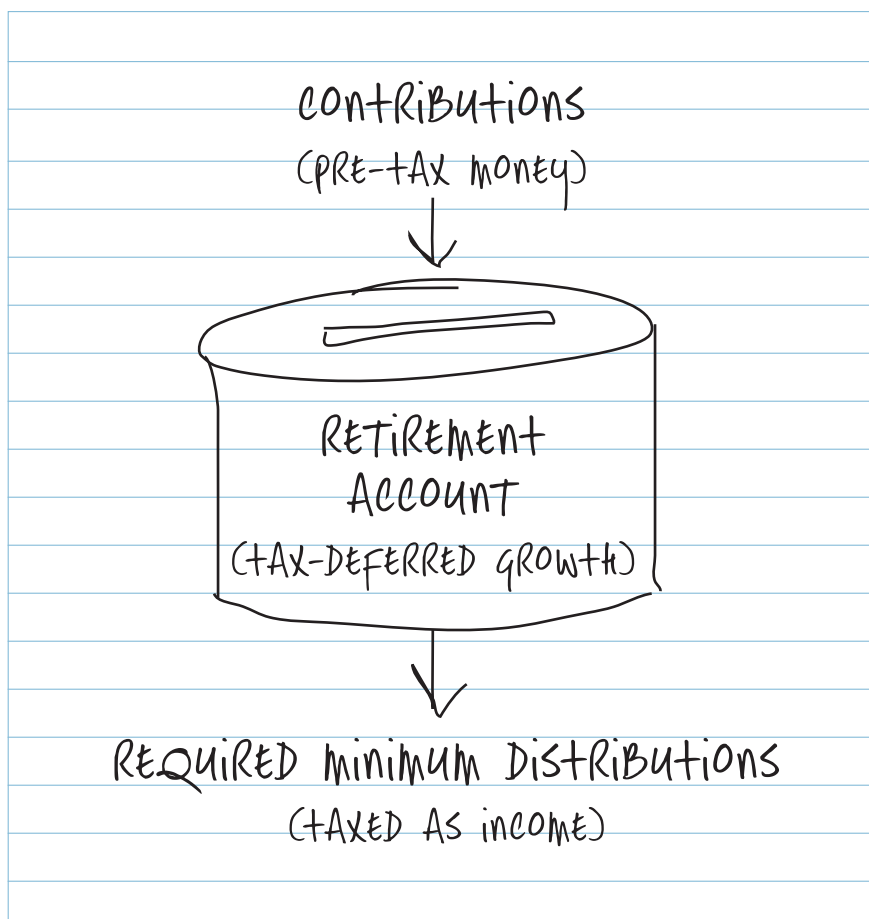 CONTRIBUTIONS
(PRE-TAX MONEY)
RETIREMENT
ACCOUNT
(TAX-DEFERRED GROWTH)
REQUIRED MINIMUM DISTRIBUTIONS
(TAXED AS INCOME)